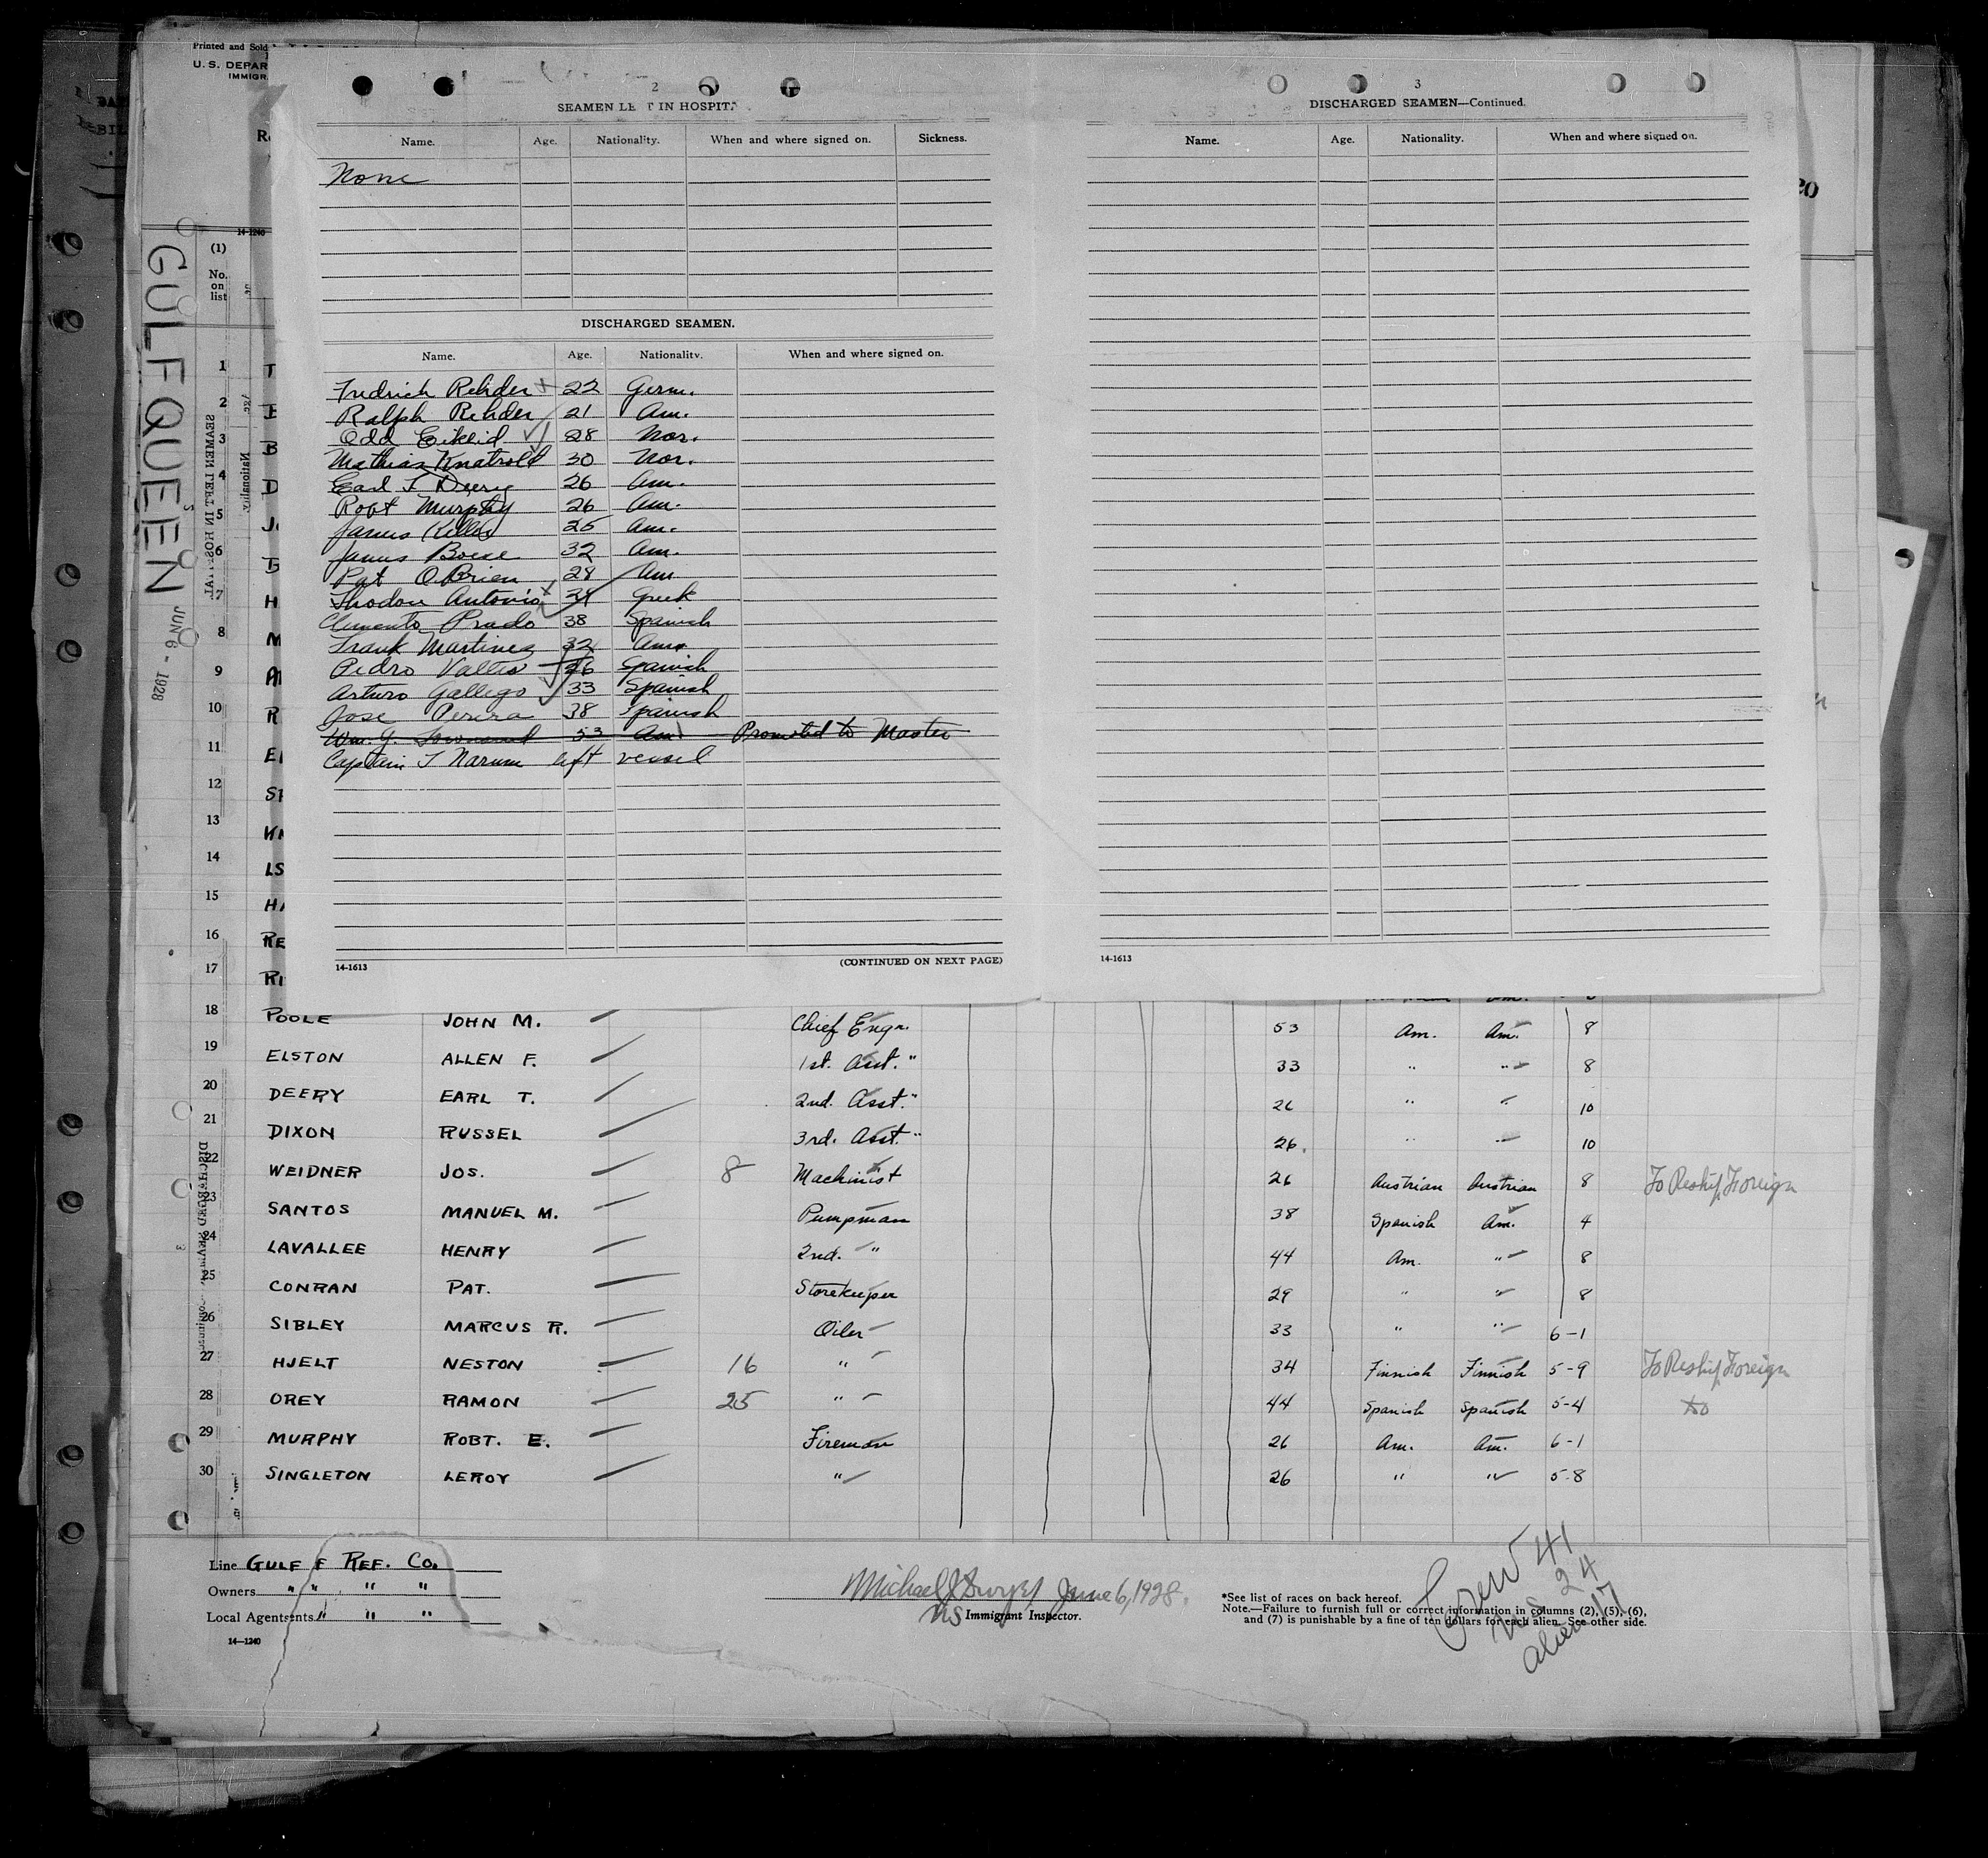 Printed and Sold
U. S. DEPAR
IMMIGR
14-1240
GULFQUEEN
JUN 6 - 1928
(1)
No. on list
2
SEAMEN LEFT IN HOSPITA
Name. Age. Nationality. When and where signed on. Sickness.
None
DISCHARGED SEAMEN.
Name. Age. Nationality. When and where signed on.
Fredrich Rehder 22 Germ.
Ralph Rehder 21 Am.
Odd Eikeid 28 Nor.
Mathias Knatrold 30 Nor.
Earl T Deery 26 Am.
Robt Murphy 26 Am.
James 25 Am.
James Boese 32 Am.
Pat O.Brien 28 Am
Thodou Antonio 34 Greek
Clemento Prado 38 Spanish
Frank Martinez 32 Am.
Pedro Valles 26 Spanish
Arturo Gallego 33 Spanish
Jose Perera 38 Spanish
Wm. G. Townsend 53 Am Promoted to Master
Captain T Narum left vessel
14-1613 (CONTINUED ON NEXT PAGE)
3
DISCHARGED SEAMEN—Continued.
Name. Age. Nationality. When and where signed on.
14-1613
20
1 T
2 E
3 B
4 D
5 J
6 G
7 H
8 M
9
10 R
11 E
12 S
13 K
14 LS
15 H
16 RE
17 RI
18 POOLE JOHN M. Chief Engr. 53 Am. Am. 8
19 ELSTON ALLEN F. 1st. Asst. " 33 " " 8
20 DEERY EARL T. 2nd. Asst. " 26 " " 10
21 DIXON RUSSEL 3rd. Asst. " 26. " " 10
22 WEIDNER JOS. 8 Machinist 26 Austrian Austrian 8 To Reship Foreign
23 SANTOS MANUEL M. Pumpman 38 Spanish Am. 4
24 LAVALLEE HENRY 2nd. " 44 Am. " 8
25 CONRAN PAT. Storekeeper 29 " " 8
26 SIBLEY MARCUS R. Oiler 33 " " 6-1
27 HJELT NESTON 16 " 34 Finnish Finnish 5-9 To Reship Foreign
28 OREY RAMON 25 " 44 Spanish Spanish 5-4 do
29 MURPHY ROBT. E. Fireman 26 Am. Am. 6-1
30 SINGLETON LEROY " 26 " " 5-8
Line GULF REF. CO.
Owners " " " "
Local Agents " " "
14—1240
Michael J Dwyer June 6, 1928.
US Immigrant Inspector.
*See list of races on back hereof.
Note.—Failure to furnish full or correct information in columns (2), (5), (6),
and (7) is punishable by a fine of ten dollars for each alien. See other side.
Crew 41
US 24
alien 17